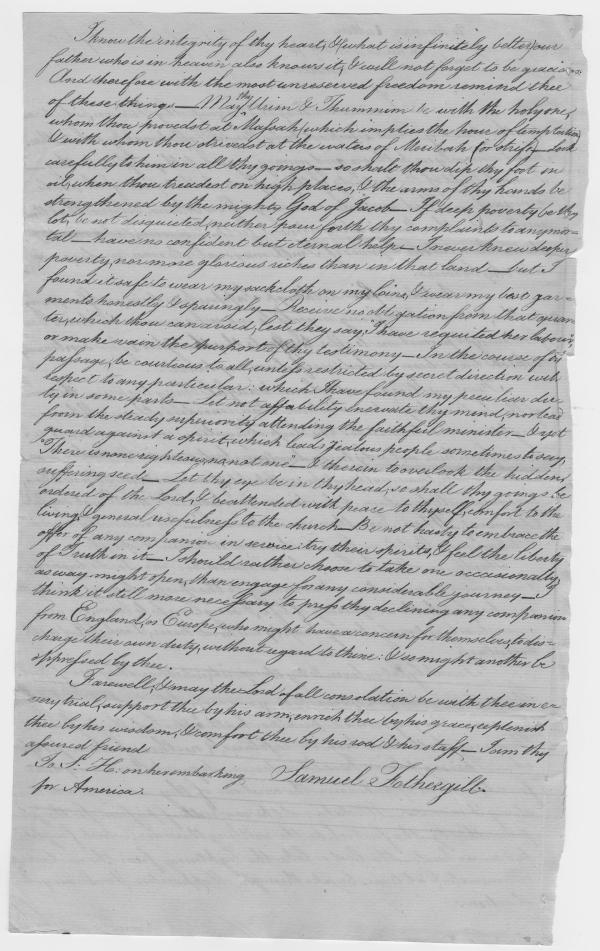 I know the integrity of thy heart, & what is infinitely better, our
father who is in heaven also knows it, & will not forget to be gracious.
And therefore with the most unreserved freedom remind thee
of these things — May thy Urim & Thummim be with the holy one,
whom thou provedst at Massah, which implies the hour of temptation,
& with whom thou strivedst at the waters of Meribah for strife — Look
carefully to him in all thy goings — so shalt thou dip thy foot in
oil, when thou treadest on high places, & the arms of thy hands be
strengthened by the mighty God of Jacob — If deep poverty be thy
lot, be not disquieted, neither pour forth thy complaints to any mor-
tal — have no confident but eternal help — I never knew deeper
poverty, nor more glorious riches than in that land — but I
found it safe to wear my sackcloth on my loins, & wear my best gar-
ments honestly & sparingly — Receive no obligation from that quar-
ter, which thou can avoid, lest they say, "I have requited her labour",
or make vain the purport of thy testimony — In the course of thy
passage, be courteous to all, unless restricted by secret direction with
respect to any particular: which I have found my peculiar du-
ty in some parts — Let not affability enervate thy mind, nor lead
form the steady superiority attending the faithful minister — & yet
guard against a spirit, which leads zealous people sometimes to say,
"There is none righteous, no, not one" — & therein to overlook the hidden,
suffering seed — Let thy eye be in thy head, so shall thy goings be
ordered of the Lord, & be attended with peace to thyself, comfort to the
living, & general usefulness to the church — Be not hasty to embrace the
offer of any companion in service: try their spirits, & feel the liberty
of Truth in it — I should rather choose to take one occasionally,
as way might open, than engage for any considerable journey — I
think it still more necessary to press thy declining any companion
from England, or Europe, who might have a concern for themselves, to dis-
charge their own duty, without regard to thine: & so might another be
oppressed by thee.
Farewell, & may the Lord of all consolation be with thee in e-
very trial, support thee by his arm, enrich thee by his grace, replenish
thee by his wisdom, & comfort thee by his rod & his staff — I am thy
assured friend
Samuel Fothergill.
To S. H: on her embarking
for America.